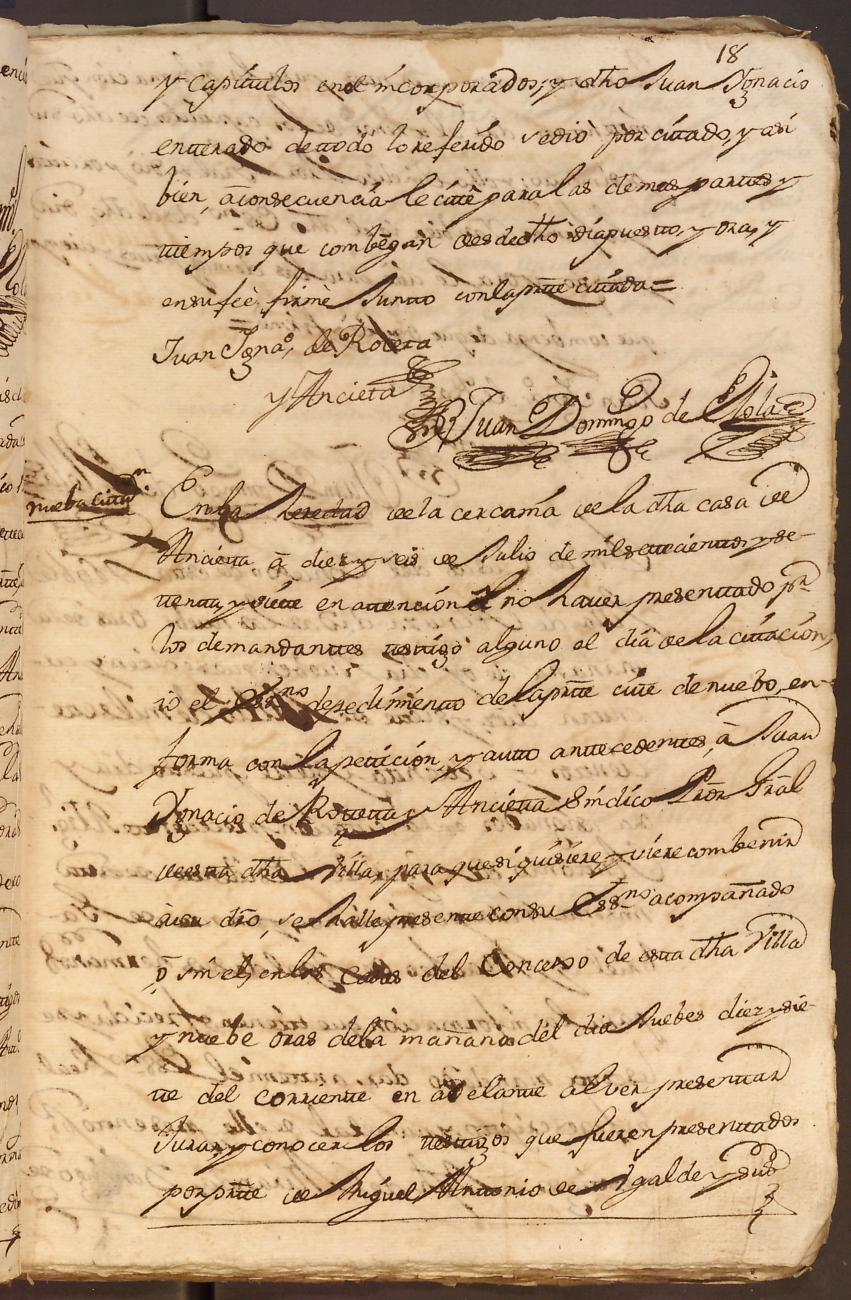 18
y Capitulos en el incorporados, y dho Juan Ignacio
enterado de todo lo referido se diò por citado, y asi
bien, à consecuencia le citè para las demas partes y
tiempos que combegan desde dho dia puesto, y ora, y
en su feè firmè Junto con la prte citada =
Juan Igna.º de Roteta
y Ancieta
Juan Domingo de Elola
nueba citan.
En la heredad de la cercania de la dha casa de
Ancieta à diez y seis de Julio de mil setecientos y se-
tenta y siete en atencion el no haver presentado pr
los demandantes testigo alguno el dia de la citacion,
io el Essno de pedimiento de la prte cite de nuebo, en
forma con la peticion, y auto antecedentes, à Juan
Ygnacio de Roteta y Ancieta Sindico Pror Gral
de esta dha Villa, para que si quisiere y viere combenir
à su dro, se halle presente con su Essno acompañado
ò sin el, en las Casas del Concejo de esta dha Villa
y nuebe oras de la mañana del dia Juebes diez y sie-
te del corriente en adelante al ver presentar
Jurar y conocer los testigos que fueren presentados
por prte de Miguel Antonio de Ygalde y